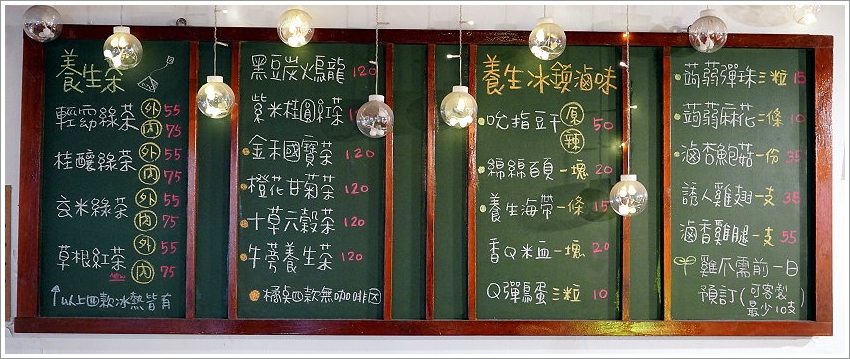 養生茶
輕窈綠茶 外 55
內 75
桂釀綠茶 外 55
內 75
玄米綠茶 外 55
內 75
草根紅茶 外 55
內 75
↑以上四款冰熱皆有
黑豆炭火烏龍 120
紫米桂圓紅茶
金禾國寶茶 120
橙花甘菊茶 120
十草六穀茶 120
牛蒡養生茶 120
橘點四款無咖啡因
養生冰鎮滷味
吮指豆干 原 辣 50
綿綿百頁一塊 20
養生海帶一條 15
香Q米血一塊 20
Q彈鳥蛋三粒 10
蒟蒻彈珠三粒 15
蒟蒻麻花一條 10
滷杏鮑菇一份 35
誘人雞翅一支 35
滷香雞腿一支 55
雞爪需前一日
預訂(可客製
最少10支)